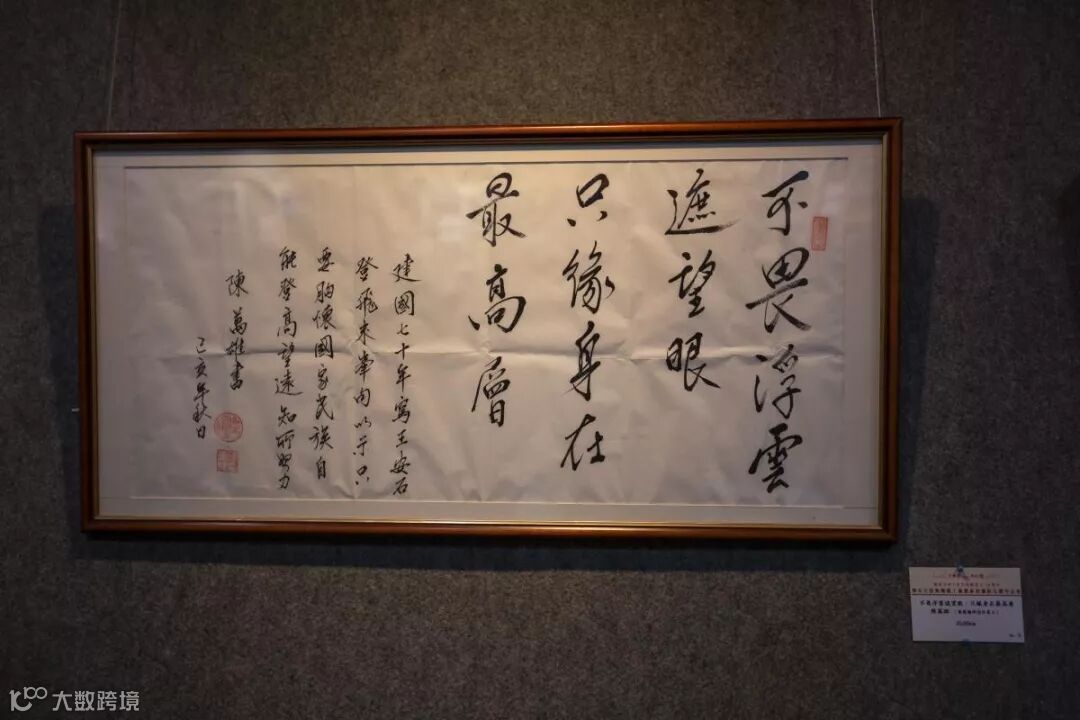 不畏浮雲
遮望眼
只緣身在
最高層
建國七十年寫王安石
登飛來峯句以示只
要胸懷國家民族自
能登高望遠知所努力
陳萬雄書
己亥年秋日
不畏浮雲遮望眼,只緣身在最高層
陳萬雄
大数跨境